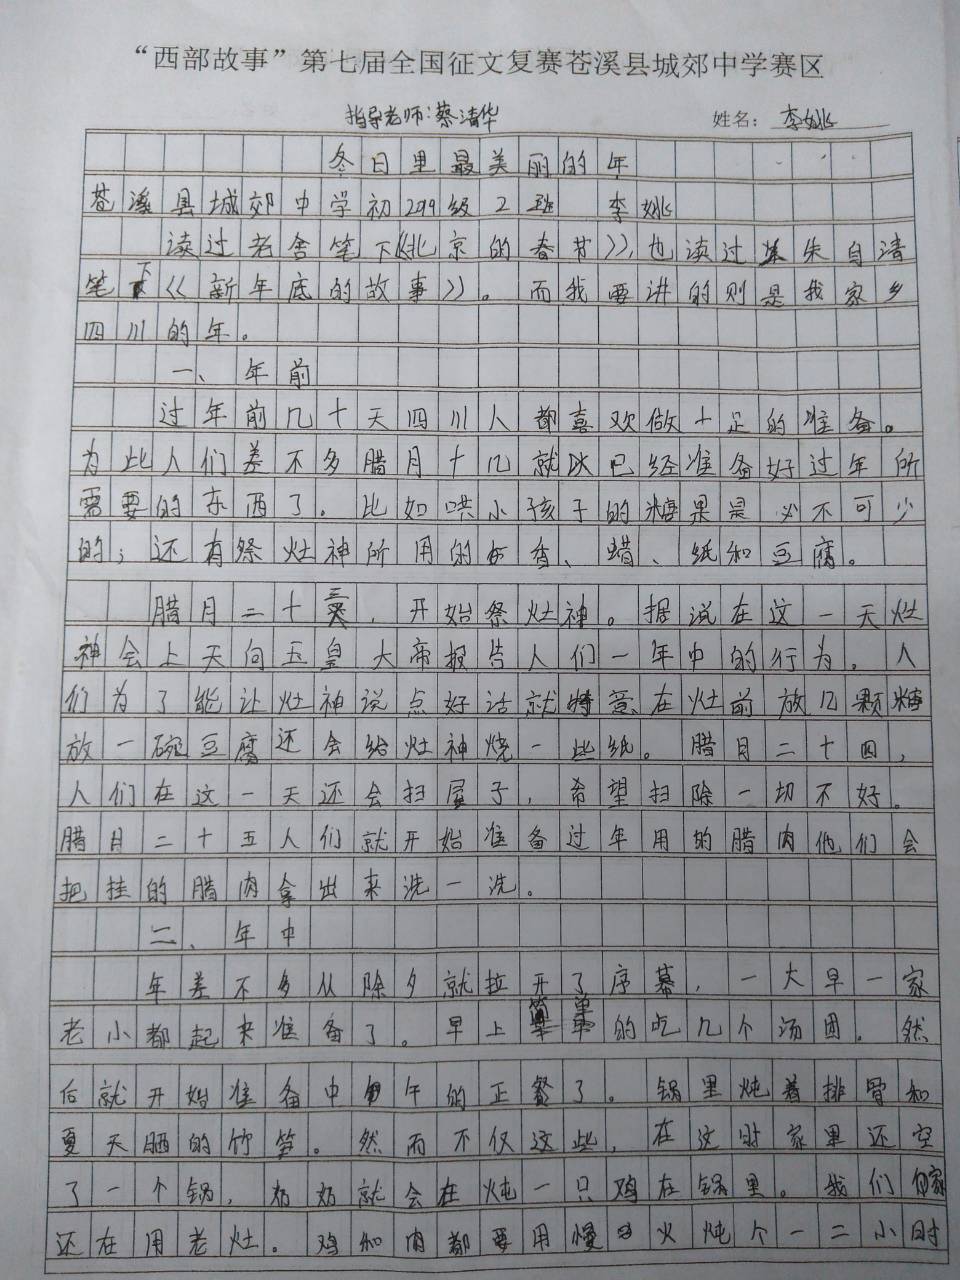 “西部故事”第七届全国征文复赛苍溪县城郊中学赛区
指导老师：蔡清华 姓名：李姚
冬日里最美丽的年
苍溪县城郊中学初2019级2班 李姚
读过老舍笔下《北京的春节》，也读过朱自清
笔下《新年底的故事》。而我要讲的则是我家乡
四川的年。
一、年前
过年前几十天四川人都喜欢做十足的准备。
为此人们差不多腊月十几就以已经准备好过年所
需要的东西了。比如哄小孩子的糖果是必不可少
的；还有祭灶神所用的香、蜡、纸和豆腐。
腊月二十三，开始祭灶神。据说在这一天灶
神会上天向玉皇大帝报告人们一年中的行为。人
们为了能让灶神说点好话就特意在灶前放几颗糖
放一碗豆腐还会给灶神烧一些纸。腊月二十四，
人们在这一天还会扫屋子，希望扫除一切不好。
腊月二十五人们就开始准备过年用的腊肉他们会
把挂的腊肉拿出来洗一洗。
二、年中
年差不多从除夕就拉开了序幕，一大早一家
老小都起来准备了。早上简单的吃几个汤团。然
后就开始准备中午的正餐了。锅里炖着排骨和
夏天晒的竹笋。然而不仅这些，在这时家里还空
了一个锅，奶奶就会在炖一只鸡在锅里。我们家
还在用老灶。鸡和肉都要用慢火炖个一二小时